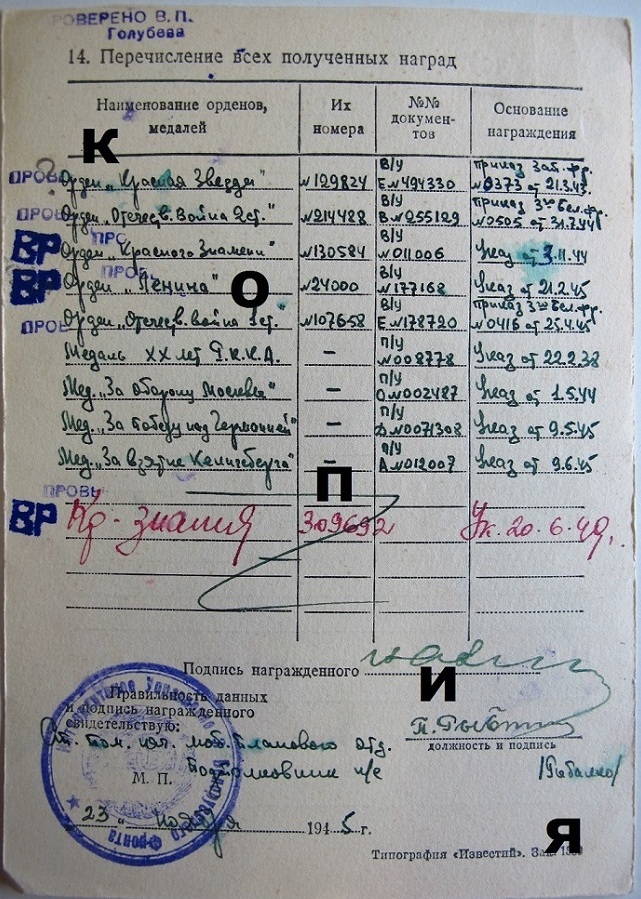 ПРОВЕРЕНО В.П.
Голубева
14. Перечисление всех полученных наград
Наименование орденов, медалей | Их номера | №№ документов | Основание награждения
К
Орден „Красная Звезда" | №129824 | В/У Е№494330 | Приказ Зап. фр. №0373 от 21.3.43
Орден „Отечеств. война 2ст." | №214488 | В/У В№255129 | Приказ 3го Бел. фр. №0505 от 31.7.44
ВР Орден „Красного Знамени" | №130584 | В/У №011006 | Указ от 3.11.44
ВР Орден „Ленина" | №24000 | В/У №177168 | Указ от 21.2.45
О
Орден „Отечеств. война 1ст." | №107658 | В/У Е№178720 | Приказ 3го Бел. фр. №0416 от 25.4.45
Медаль XX лет Р.К.К.А. | – | П/У №008778 | Указ от 22.2.38
Мед. „За оборону Москвы" | – | П/У О№002487 | Указ от 1.5.44
Мед. „За победу над Германией" | – | П/У Д№0071308 | Указ от 9.5.45
Мед. „За взятие Кенигсберга" | – | П/У А№012007 | Указ от 9.6.45
П
ВР Кр. знамя | 309692 | Ук. 20.6.49г.
Подпись награжденного
И
Правильность данных
и подпись награжденного
свидетельствую:
Ст. пом. нач. моб. планового отд.
должность и подпись
М. П. Подполковник и/с /Рыбалко/
„23" ноября 1945 г.
Я
Типография «Известий». Зак.